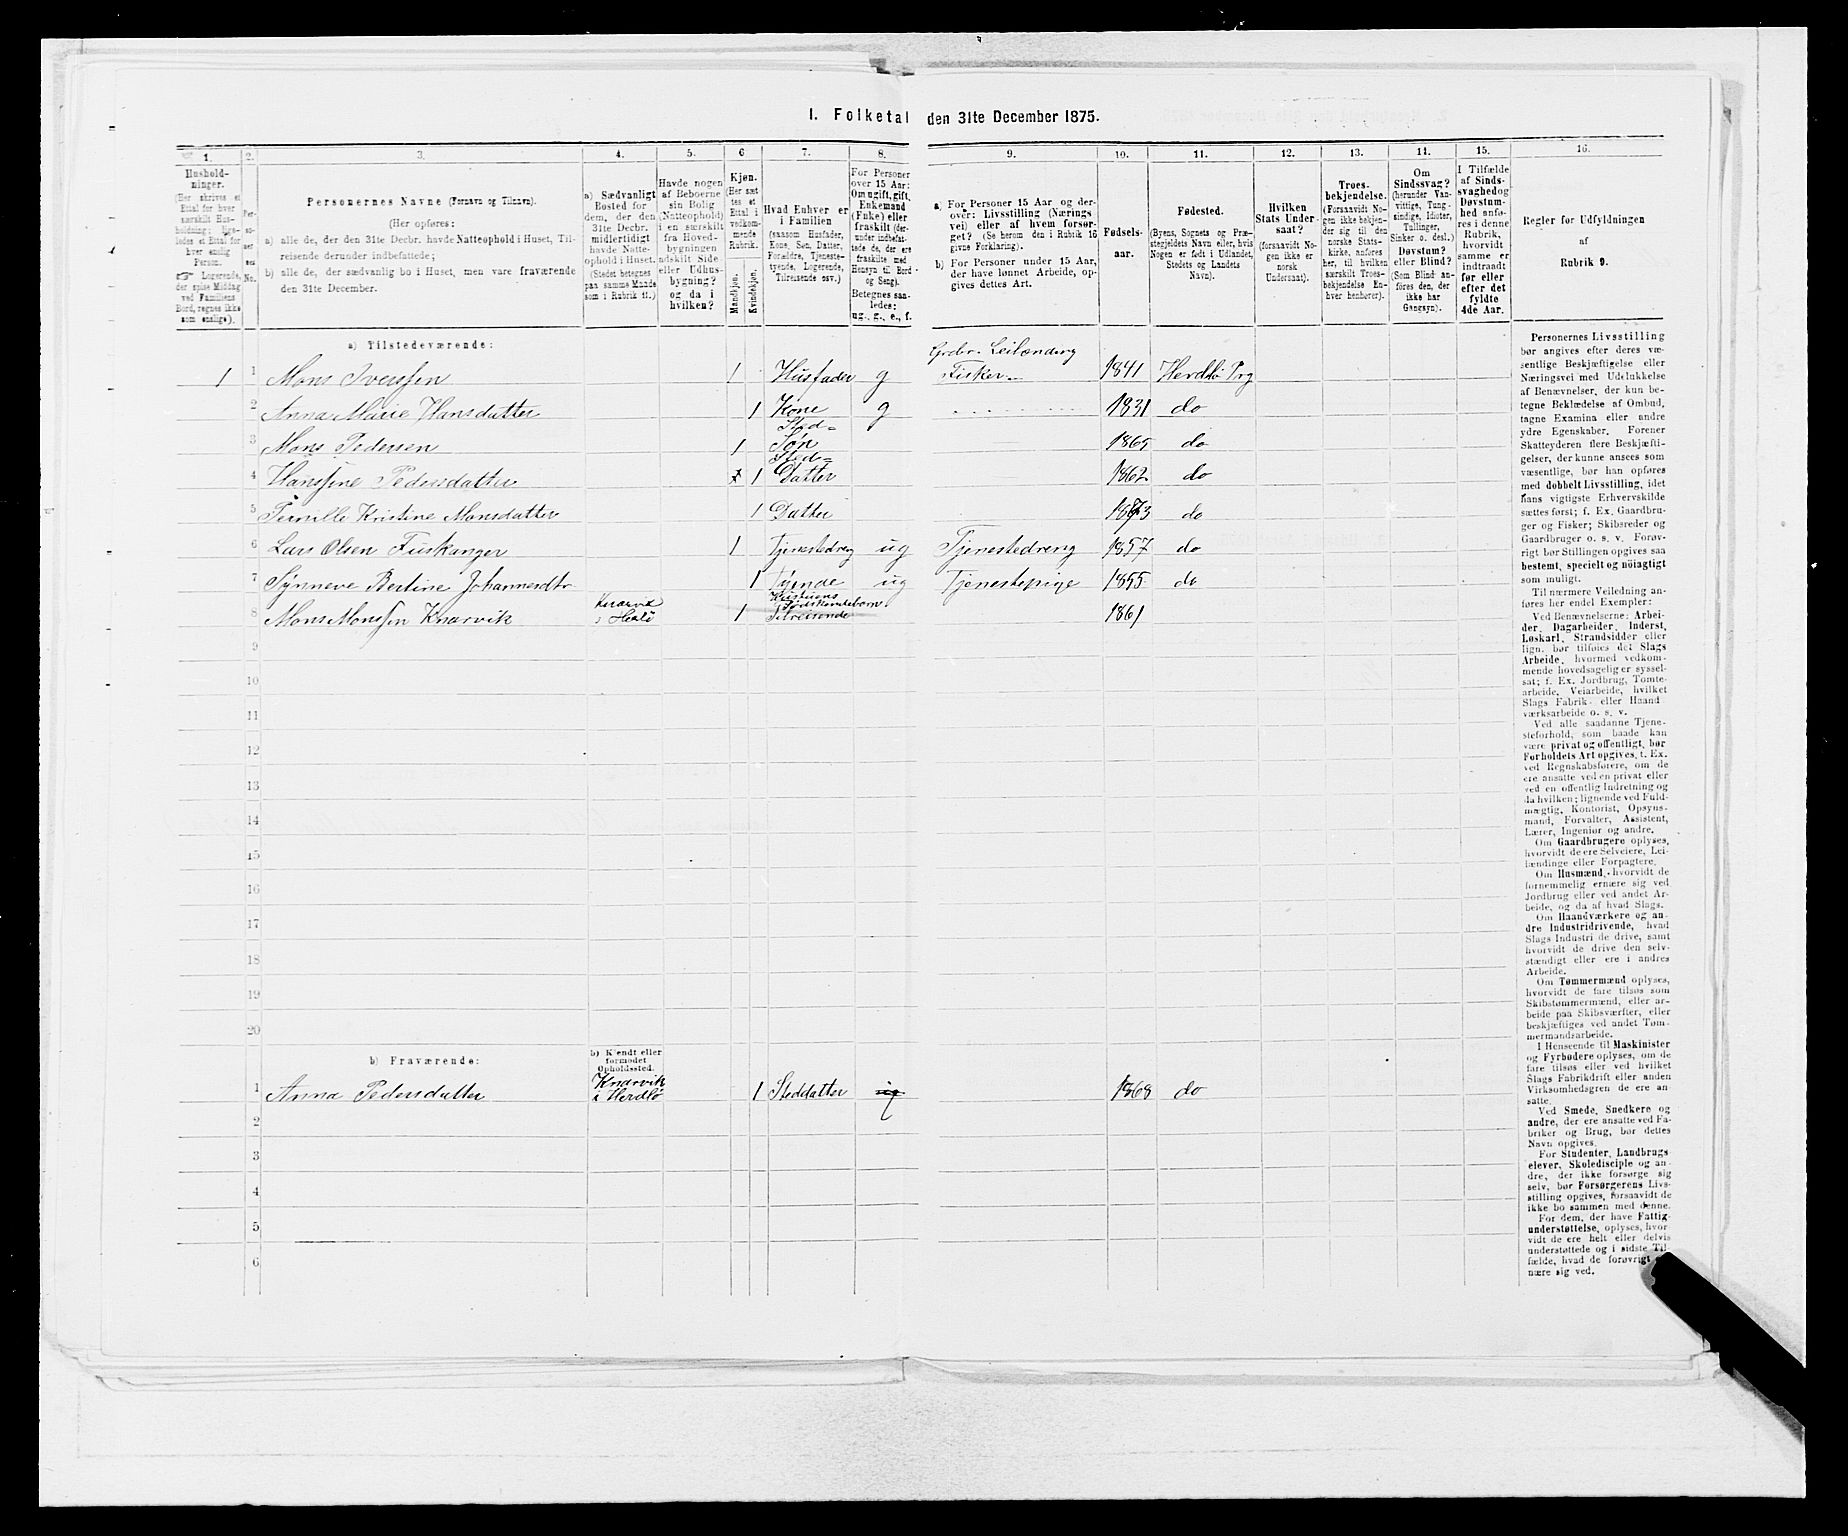 1. Folketal den 31te December 1875.
1. 2. 3. 4. 5. 6 7. 8. 9. 10. 11. 12. 13. 14. 15. 16.
Hushold-
ninger.
(Her skrives et
Ettal for hver
særskilt Hus-
holdning; lige-
ledes et Ettal for
hver enslig
Person.
☞ Logerende,
der spise Middag
ved Familiens
Bord, regnes ikke
som enslige).
Per-
so-
ner-
nes
No.
Personernes Navne (Fornavn og Tilnavn).
(Her opføres:
a) alle de, der den 31te Decbr. havde Natteophold i Huset, Til-
reisende derunder indbefattede;
b) alle de, der sædvanlig bo i Huset, men vare fraværende
den 31te December.
a) Sædvanligt
Bosted for
dem, der den
31te Decbr.
midlertidigt
havde Natte-
ophold i Huset.
(Stedet betegnes
paa samme Maade
som i Rubrik 11.)
Havde nogen
af Beboerne
sin Bolig
(Natteophold)
i en særskilt
fra Hoved-
bygningen
adskilt Side
eller Udhus-
bygning?
og da i
hvilken?
Kjøn.
(Her sæt
tes et
Ettal i
vedkom-
mende
Rubrik.
Mandkjøn.
Kvindekjøn.
Hvad Enhver er
i Familien
(saasom Husfader,
Kone, Søn, Datter,
Forældre, Tjeneste-
tyende, Logerende,
Tilreisende osv.)
For Personer
over 15 Aar:
Om ugift, gift,
Enkemand
(Enke) eller
fraskilt (der-
under indbefat-
tede de, der ere
fraskilte med
Hensyn til Bord
og Seng).
Betegnes saa-
ledes:
ug., g., e., f.
a) For Personer 15 Aar og der-
over: Livsstilling (Nærings-
vei) eller af hvem forsør-
get? (Se herom den i Rubrik 16
givne Forklaring).
b) For Personer under 15 Aar,
der have lønnet Arbeide, op-
gives dettes Art.
Fødsels-
aar.
Fødested.
(Byens, Sognets og Præ-
stegjeldets Navn eller, hvis
Nogen er født i Udlandet,
Stedets og Landets
Navn).
Hvilken
Stats Under-
saat?
(forsaavidt No-
gen ikke er
norsk
Undersaat).
Troes-
bekjendelse.
(Forsaavidt No-
gen ikke bekjen-
der sig til den
norske Stats-
kirke, anføres
her, til hvilken
særskilt Troes-
bekjendelse En-
hver henhører).
Om
Sindssvag?
(herunder Van-
vittige, Tung-
sindige, Idioter,
Tullinger,
Sinker o. desl.)
Døvstum?
eller Blind?
(Som Blind an-
føres den, der
ikke har
Gangsyn).
I Tilfælde
af Sinds-
svaghed og
Døvstum-
hed anfø-
res i denne
Rubrik,
hvorvidt
samme er
indtraadt
før eller
efter det
fyldte
4de Aar.
Regler for Udfyldningen
af
Rubrik 9.
a) Tilstedeværende:
Leilænding
1 1 Mons Iverssen 1 Husfader g Fisker 1841 Herdlø Prg
2 Anna Marie Hansdatter 1 Kone g 1831 do
3 Mons Pedersen 1 Sted= Søn 1865 do
4 Hanssine Pedersdatter 1 Sted= Datter 1862 do
5 Pernille Kristine Monsdatter 1 Datter 1873 do
6 Lars Olsen Fuskanger 1 Tjenestedreng ug Tjenestedreng 1857 do
7 Synneve Bertine Johannesdtr 1 Tyende ug Tjenestepige 1855 do
8 Mons Monssen Knarvik Knarvik i 1 Tilreisende 1861
9
10
11
12
13
14
15
16
17
18
19
20
b) Fraværende:
b) Kjendt eller
formodet
Opholdssted.
1 Anna Pedersdatter Knarvik i Herdlø 1 Steddatter 1868 do
2
3
4
5
6
Personernes Livsstilling
bør angives efter deres væ-
sentlige Beskjæftigelse eller
Næringsvei med Udelukkelse
af Benævnelser, der kun be-
tegne Beklædelse af Ombud,
tagne Examina eller andre
ydre Egenskaber. Forener
Skatteyderen flere Beskjæfti-
gelser, der kunne ansees som
væsentlige, bør han opføres
med dobbelt Livsstilling, idet
hans vigtigste Erhvervskilde
sættes først; f. Ex. Gaardbru-
ger og Fisker; Skibsreder og
Gaardbruger o. s. v. Forøv-
rigt bør Stillingen opgives saa
bestemt, specielt og nøiagtigt
som muligt.
Til nærmere Veiledning an-
føres her endel Exempler:
Ved Benævnelserne: Arbei-
der, Dagarbeider, Inderst,
Løskarl, Strandsidder eller
lign. bør tilføies det Slags
Arbeide, hvormed vedkom-
mende hovedsagelig er syssel-
sat; f. Ex. Jordbrug, Tomte-
arbeide, Veiarbeide, hvilket
Slags Fabrik- eller Haand
værksarbeide o. s. v.
Ved alle saadanne Tjene-
steforhold, som baade kan
være privat og offentligt, bør
Forholdets Art opgives, t. Ex.
ved Regnskabsførere, om de
ere ansatte ved en privat eller
ved en offentlig Indretning og
da hvilken; lignende ved Fuld-
mægtig, Kontorist, Opsyns-
mand, Forvalter, Assistent,
Lærer, Ingeniør og andre.
Om Gaardbrugere oplyses,
hvorvidt de ere Selveiere, Lei-
lændinge eller Forpagtere.
Om Husmænd, hvorvidt de
fornemmelig ernære sig ved
Jordbrug eller ved andet Ar-
beide, og da af hvad Slags.
Om Haandværkere og an-
dre Industridrivende, hvad
Slags Industri de drive, samt
hvorvidt de drive den selv-
stændigt eller ere i andres
Arbeide.
Om Tømmermænd oplyses,
hvorvidt de fare tilsøs som
Skibstømmermænd, eller ar-
beide paa Skibsværfter, eller
beskjæftiges ved andet Tøm-
mermandsarbeide.
I Henseende til Maskinister
og Fyrbødere oplyses, om de
fare tilsøs eller ved hvilket
Slags Fabrikdrift eller anden
Virksomhedsgren de ere an-
satte.
Ved Smede, Snedkere og
andre, der ere ansatte ved Fa-
briker og Brug, bør dettes
Navn opgives.
For Studenter, Landbrugs
elever, Skoledisciple og an-
dre, der ikke forsørge sig
selv, bør Forsørgerens Livs-
stilling opgives, forsaavidt de
ikke bo sammen med denne.
For dem, der have Fattig-
understøttelse, oplyses, hvor-
vidt de ere helt eller delvis
understøttede og i sidste Til-
fælde, hvad de forøvrigt
nære sig ved.